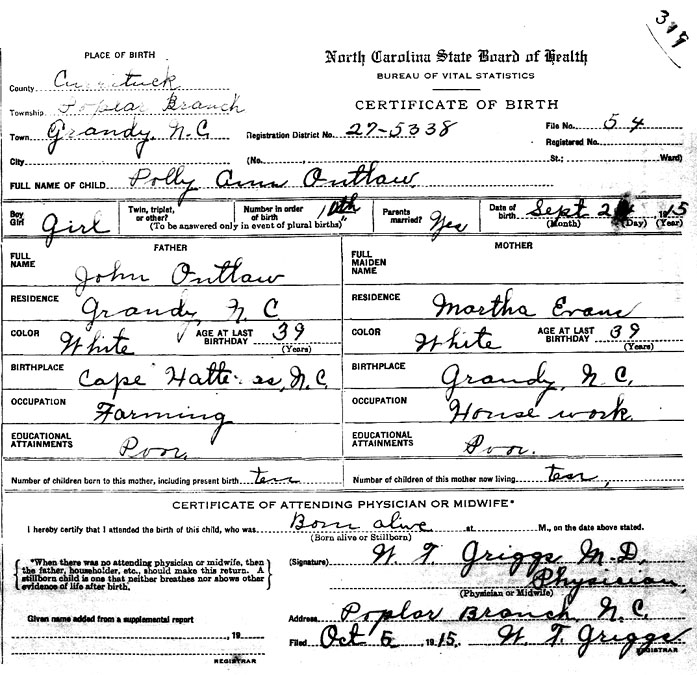 379
PLACE OF BIRTH
North Carolina State Board of Health
BUREAU OF VITAL STATISTICS
County Currituck
CERTIFICATE OF BIRTH
Township Poplar Branch
Town Grandy, N.C. Registration District No. 27-5338 File No. 54
Registered No.
City (No. , St.; Ward)
FULL NAME OF CHILD Polly Ann Outlaw
Boy Girl Girl Twin, triplet, or other? Number in order of birth 10th Parents married? Yes Date of birth Sept 1915
(To be answered only in event of plural births) (Month) (Day) (Year)
FATHER MOTHER
FULL NAME John Outlaw FULL MAIDEN NAME
RESIDENCE Grandy N C RESIDENCE Martha Evans
COLOR White AGE AT LAST BIRTHDAY 39 (Years) COLOR White AGE AT LAST BIRTHDAY 39 (Years)
BIRTHPLACE Cape Hatteras, N.C. BIRTHPLACE Grandy, N.C.
OCCUPATION Farming OCCUPATION House work
EDUCATIONAL ATTAINMENTS Poor. EDUCATIONAL ATTAINMENTS Poor.
Number of children born to this mother, including present birth ten Number of children of this mother now living ten,
CERTIFICATE OF ATTENDING PHYSICIAN OR MIDWIFE*
I hereby certify that I attended the birth of this child, who was Born alive at M., on the date above stated.
(Born alive or Stillborn)
*When there was no attending physician or midwife, then
the father, householder, etc., should make this return. A
stillborn child is one that neither breathes nor shows other
evidence of life after birth.
(Signature) W. T. Griggs M.D.
Physician,
(Physician or Midwife)
Given name added from a supplemental report
Address Poplar Branch, N.C.
, 19
Filed Oct 5, 1915. W. T. Griggs
REGISTRAR REGISTRAR